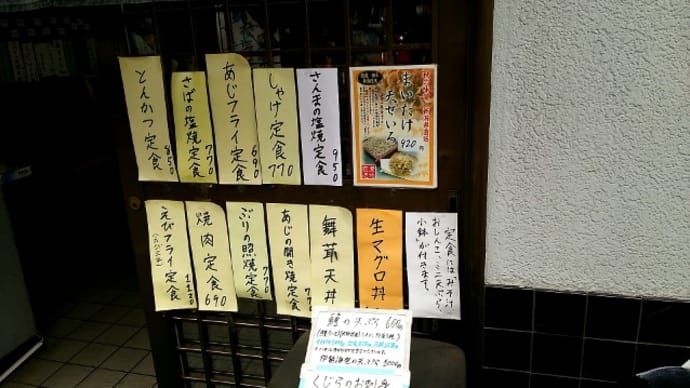 とんかつ定食 850
さばの塩焼定食 770
あじフライ定食 690
しゃけ定食 770
さんまの塩焼定食 950
まいたけ
天せいろ
920円
えびフライ定食 1120
焼肉定食 690
ぶりの照焼定食 770
あじの開き焼定食 770
舞茸天丼
生マグロ丼
定食には「みそ汁
おしんこ、ミニ天ぷら
小鉢」が付きます。
の天ぷら
くじらのお刺身